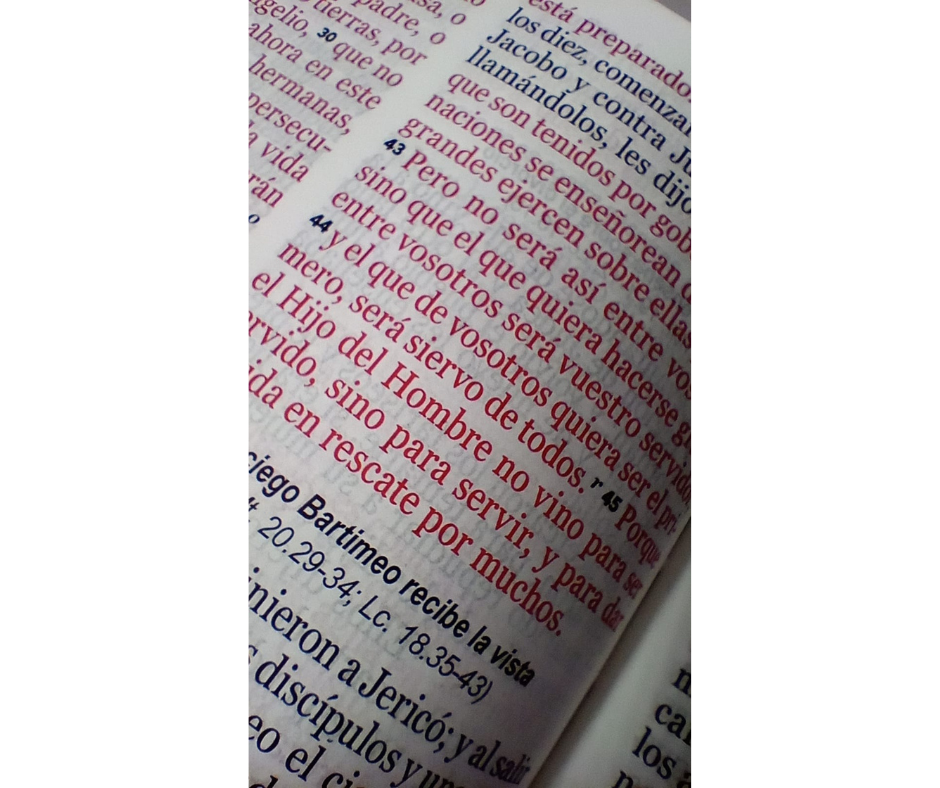 sa, o
padre, o
tierras, por
gelio, 30 que no
ahora en este
hermanas,
persecu-
vida
rán
está preparado.
los diez, comenza
Jacobo y contra Ju
llamándolos, les dijo
que son tenidos por gob
naciones se enseñorean d
grandes ejercen sobre ellas
43 Pero no será así entre vos
sino que el que quiera hacerse g
entre vosotros será vuestro servido
44 y el que de vosotros quiera ser el pri
mero, será siervo de todos. r 45 Porque
el Hijo del Hombre no vino para ser
rvido, sino para servir, y para dar
ida en rescate por muchos.
ciego Bartimeo recibe la vista
t. 20.29-34; Lc. 18.35-43)
inieron a Jericó; y al salir
s discípulos y una
eo el cie
los